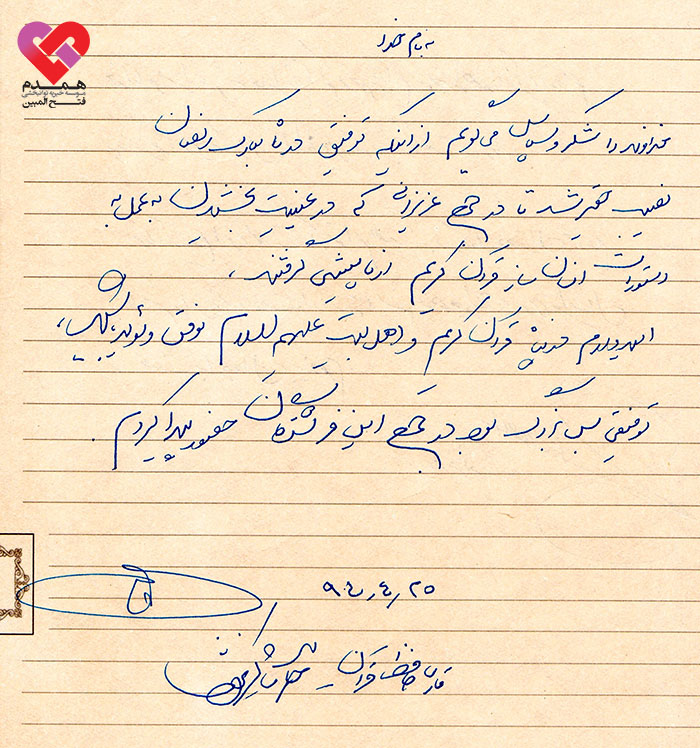 همدم
موسسه خیریه توانبخشی
فتح المبین
به نام خدا
خداوند را شکر و سپاس می‌گویم از اینکه توفیق در ماه مبارک رمضان
نصیب حقیر شد تا در جمع عزیزانی که در عینیت بخشیدن به عمل به
دستورات انسان ساز قرآن کریم از ما پیشی گرفتند،
امیدوارم در پناه قرآن کریم و اهل بیت علیهم السلام موفق و مؤید باشید،
توفیقی بس بزرگ بود در جمع این فرشتگان حضور پیدا کردم.
۹۴٫۴٫۲۵
قاری و حافظ قرآن